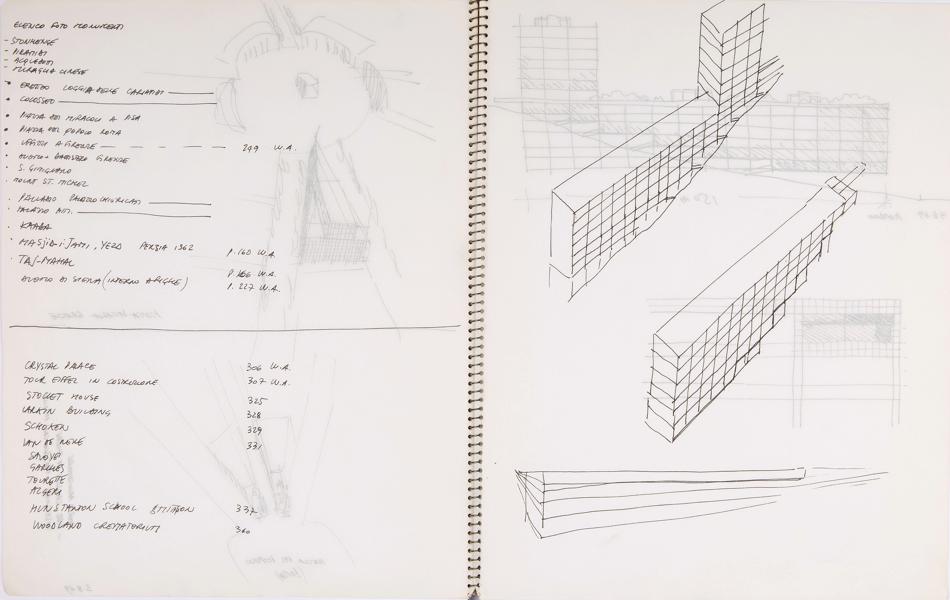 ELENCO FOTO MONUMENTI
- STONHENGE
- PIRAMIDI
- ACQUEDOTTI
- MURAGLIA CINESE
• ERETTEO LOGGIA DELLE CARIATIDI
• COLOSSEO
• PIAZZA DEI MIRACOLI A PISA
• PIAZZA DEL POPOLO ROMA
• UFFIZI A FIRENZE — — — — 249 W.A.
• DUOMO + BATTISTERO FIRENZE
· S. GIMIGNANO
· MOUNT ST. MICHEL
· PALLADIO PALAZZO CHIERICATI
· PALAZZO PITTI
· KAABA
· MASJID-I-JAMI, YEZD PERSIA 1362 P. 160 W.A.
· TAJ-MAHAL P. 166 W.A.
DUOMO DI SIENA (INTERNO A RIGHE) P. 227 W.A.
CRYSTAL PALACE 306 W.A.
TOUR EIFFEL IN COSTRUZIONE 307 W.A.
STOCLET HOUSE 325
LARKIN BUILDING 328
SCHOKEN 329
VAN DE NELLE 331
SAVOYE
GARCHES
TOURETTE
ALGERI
HUNSTANTON SCHOOL SMITHSON 337
WOODLAND CREMATORIUM 360